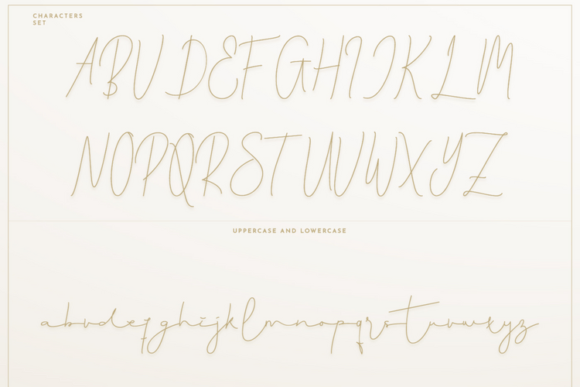 CHARACTERS
SET
A B C D E F G H I J K L M
N O P Q R S T U V W X Y Z
UPPERCASE AND LOWERCASE
a b c d e f g h i j k l m n o p q r s t u v w x y z